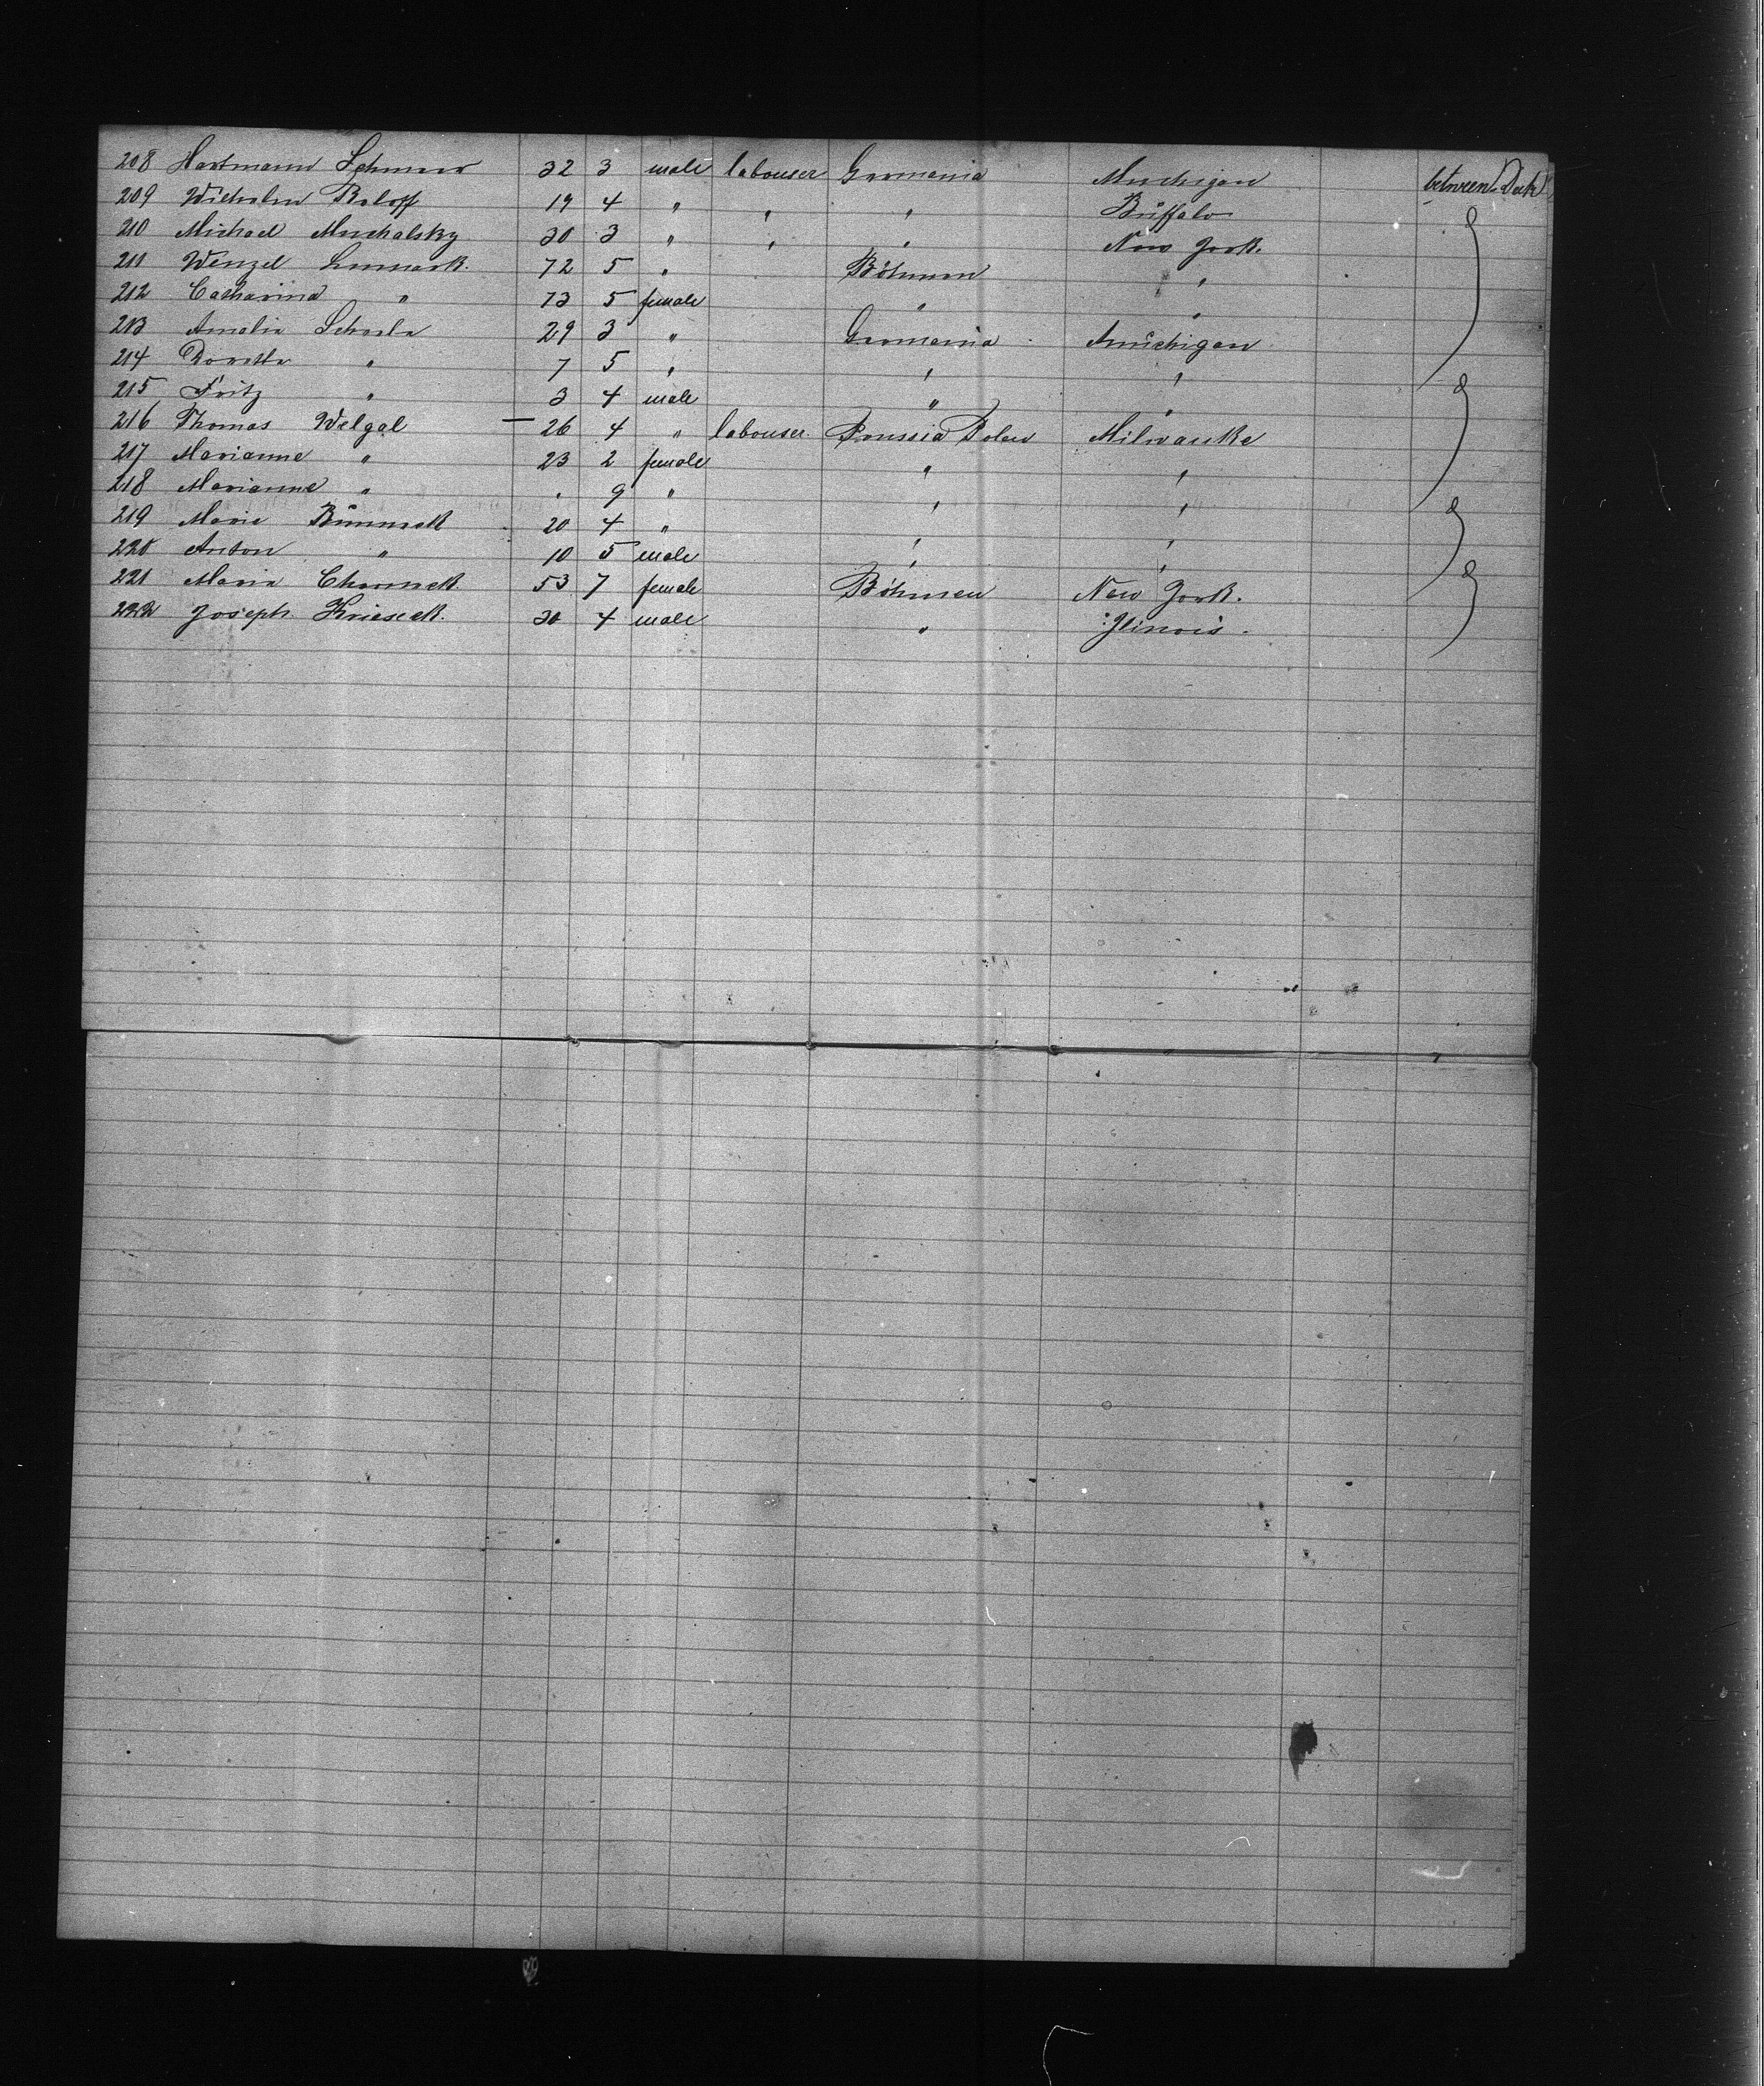 208 Hartmann 32 3 male labouser Germania Michigan between Deck
209 Wilhelm Roloff 19 4 " " " Buffalo
210 Michael Muchalsky 30 3 " " " New York.
211 Wenzel 72 5 " Böhmen "
212 Catharina " 73 5 female " "
213 Amalia 29 3 " Germania Michigan
214 Dorothe " 7 5 " " "
215 Fritz " 3 4 male " "
216 Thomas Welgal 26 4 " labouser. Prussia Polen Milwauke
217 Marianne " 23 2 female " "
218 Marianne " . 9 " " "
219 Marie 20 4 " " "
220 Anton " 10 5 male " "
221 Maria 53 7 female Böhmen New York.
222 Joseph 30 4 male " Ilinois.